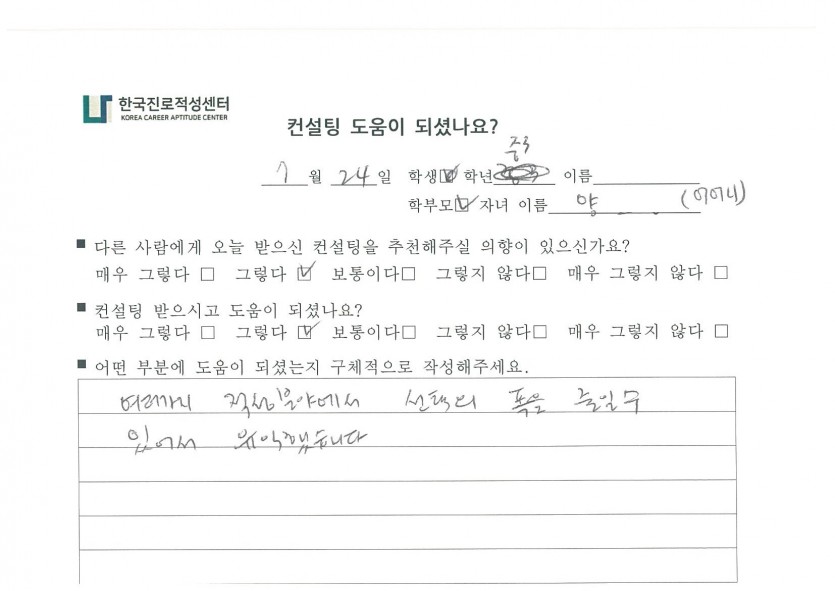 한국진로적성센터
KOREA CAREER APTITUDE CENTER
컨설팅 도움이 되셨나요?
중3
월 24일 학생☑ 학년 이름
학부모☑ 자녀 이름 양 (어머니)
■ 다른 사람에게 오늘 받으신 컨설팅을 추천해주실 의향이 있으신가요?
매우 그렇다 □ 그렇다 ☑ 보통이다□ 그렇지 않다□ 매우 그렇지 않다 □
■ 컨설팅 받으시고 도움이 되셨나요?
매우 그렇다 □ 그렇다 ☑ 보통이다□ 그렇지 않다□ 매우 그렇지 않다 □
■ 어떤 부분에 도움이 되셨는지 구체적으로 작성해주세요.
여러가지 적성분야에서 선택의 폭을 늘일수
있어서 유익했습니다